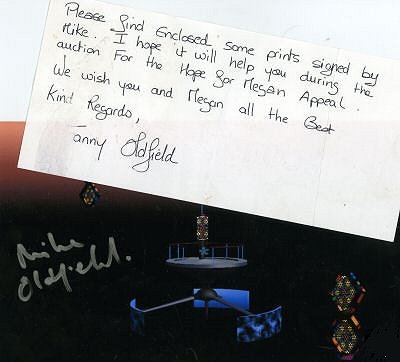 Please find Enclosed some prints signed by
Mike. I hope it will help you during the
auction For the Hope for Megan Appeal.
We wish you and Megan all the Best
Kind Regards,
Fanny Oldfield
Mike
Oldfield.